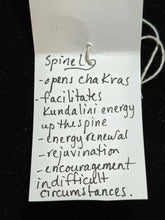 Spinel
-opens chakras
-facilitates
Kundalini energy
up the spine
-energy renewal
-rejuvination
-encouragement
in difficult
circumstances.